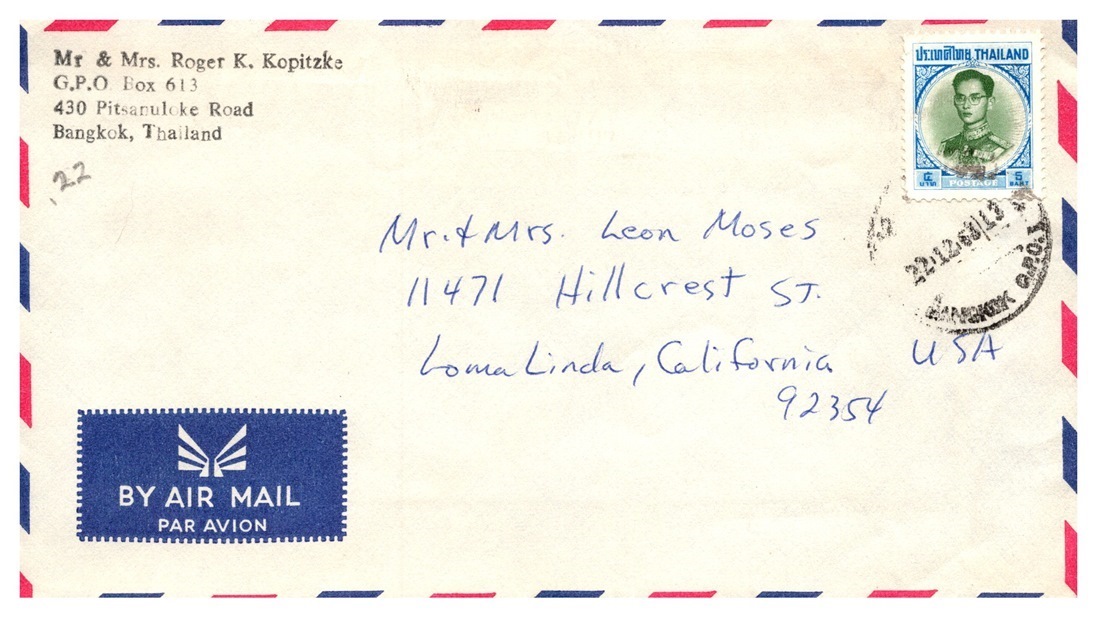 Mr & Mrs. Roger K. Kopitzke
G.P.O Box 613
430 Pitsanuloke Road
Bangkok, Thailand
.22
ประเทศไทย THAILAND
๕ 5
บาท POSTAGE BAHT
22.12.69|13
BANGKOK G.P.O.1
Mr. & Mrs. Leon Moses
11471 Hillcrest ST.
Loma Linda, California USA
92354
BY AIR MAIL
PAR AVION